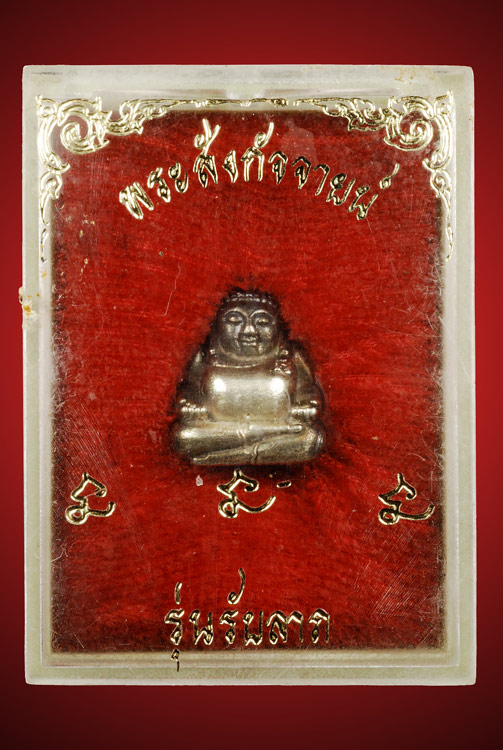 พระสังกัจจายน์
รุ่นรับลาภ